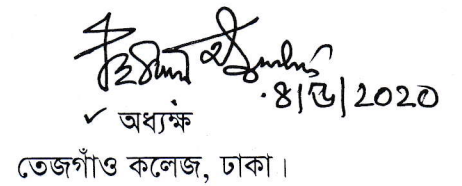 ৪|৬|2020
অধ্যক্ষ
তেজগাঁও কলেজ, ঢাকা।